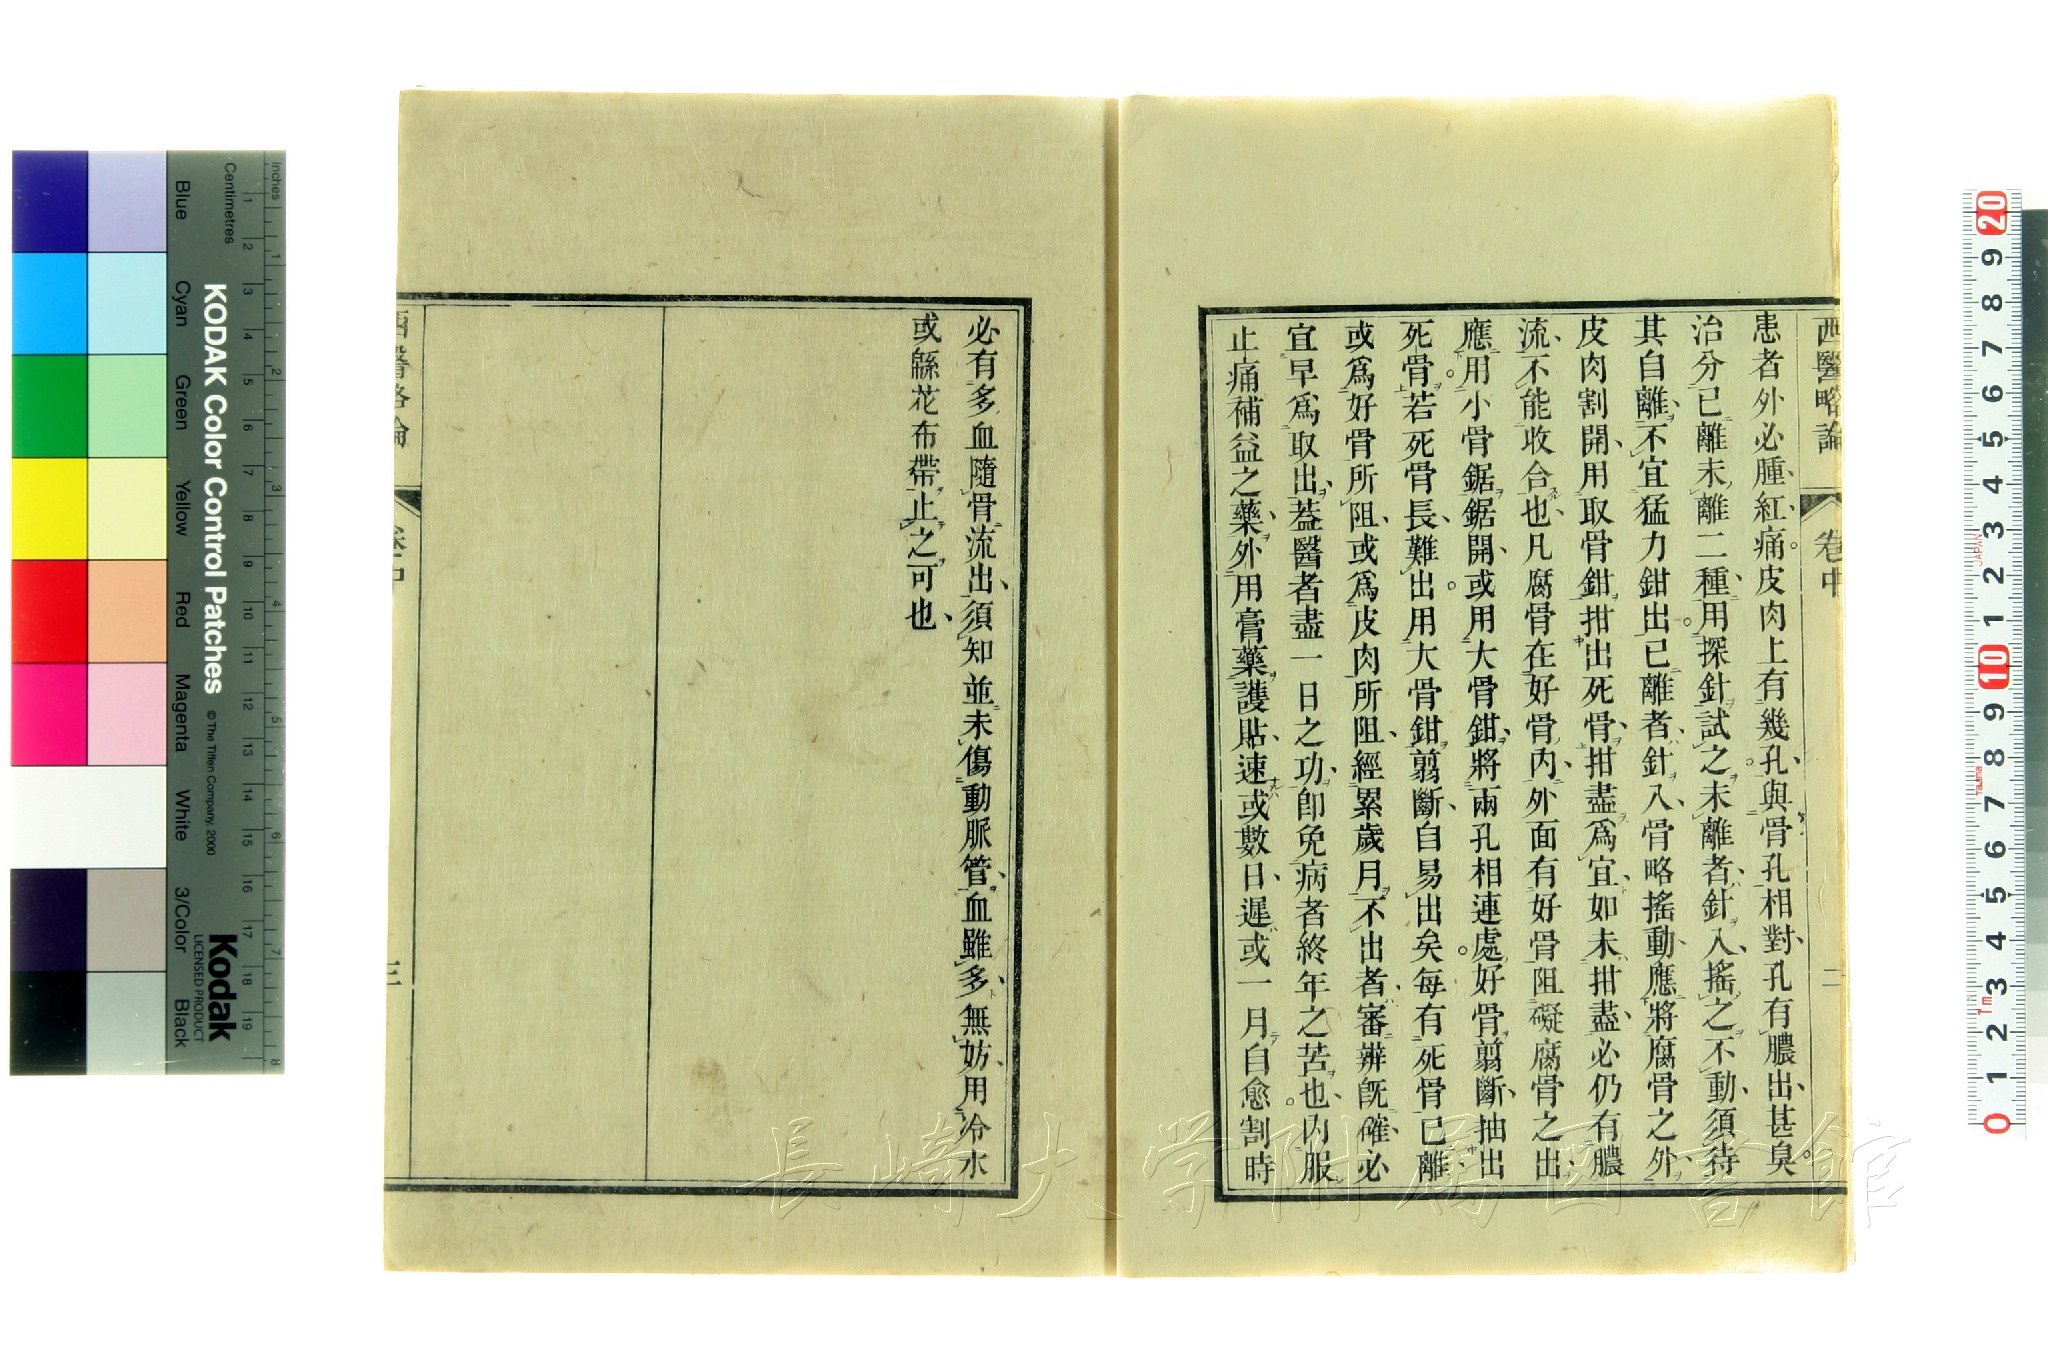 西醫略論
卷中
二
患者外必腫紅痛皮肉上有幾孔與骨孔相對孔有膿出甚臭
治分已離未離二種用探針試之未離者針入搖之不動須待
其自離不宜猛力鉗出已離者針入骨略搖動應將腐骨之外
皮肉割開用取骨鉗拑出死骨拑盡爲宜如未拑盡必仍有膿
流不能收合也凡腐骨在好骨內外面有好骨阻礙腐骨之出
應用小骨鋸鋸開或用大骨鉗將兩孔相連處好骨翦斷抽出
死骨若死骨長難出用大骨鉗翦斷自易出矣每有死骨已離
或爲好骨所阻或爲皮肉所阻經累歲月不出者審辨旣確必
宜早爲取出葢醫者盡一日之功卽免病者終年之苦也內服
止痛補益之藥外用膏藥護貼速或數日遲或一月自愈割時
必有多血隨骨流出須知並未傷動脈管血雖多無妨用冷水
或緜花布帶止之可也
西醫略論
卷中
三
長崎大学附属図書館
Inches
Centimetres
KODAK Color Control Patches
© The Tiffen Company, 2000
Kodak
LICENSED PRODUCT
Blue
Cyan
Green
Yellow
Red
Magenta
White
3/Color
Black
1 2 3 4 5 6 7 8 9 10 11 12 13 14 15 16 17 18 19
1 2 3 4 5 6 7 8
0 1 2 3 4 5 6 7 8 9 10 1 2 3 4 5 6 7 8 9 20
JAPAN
Tajima